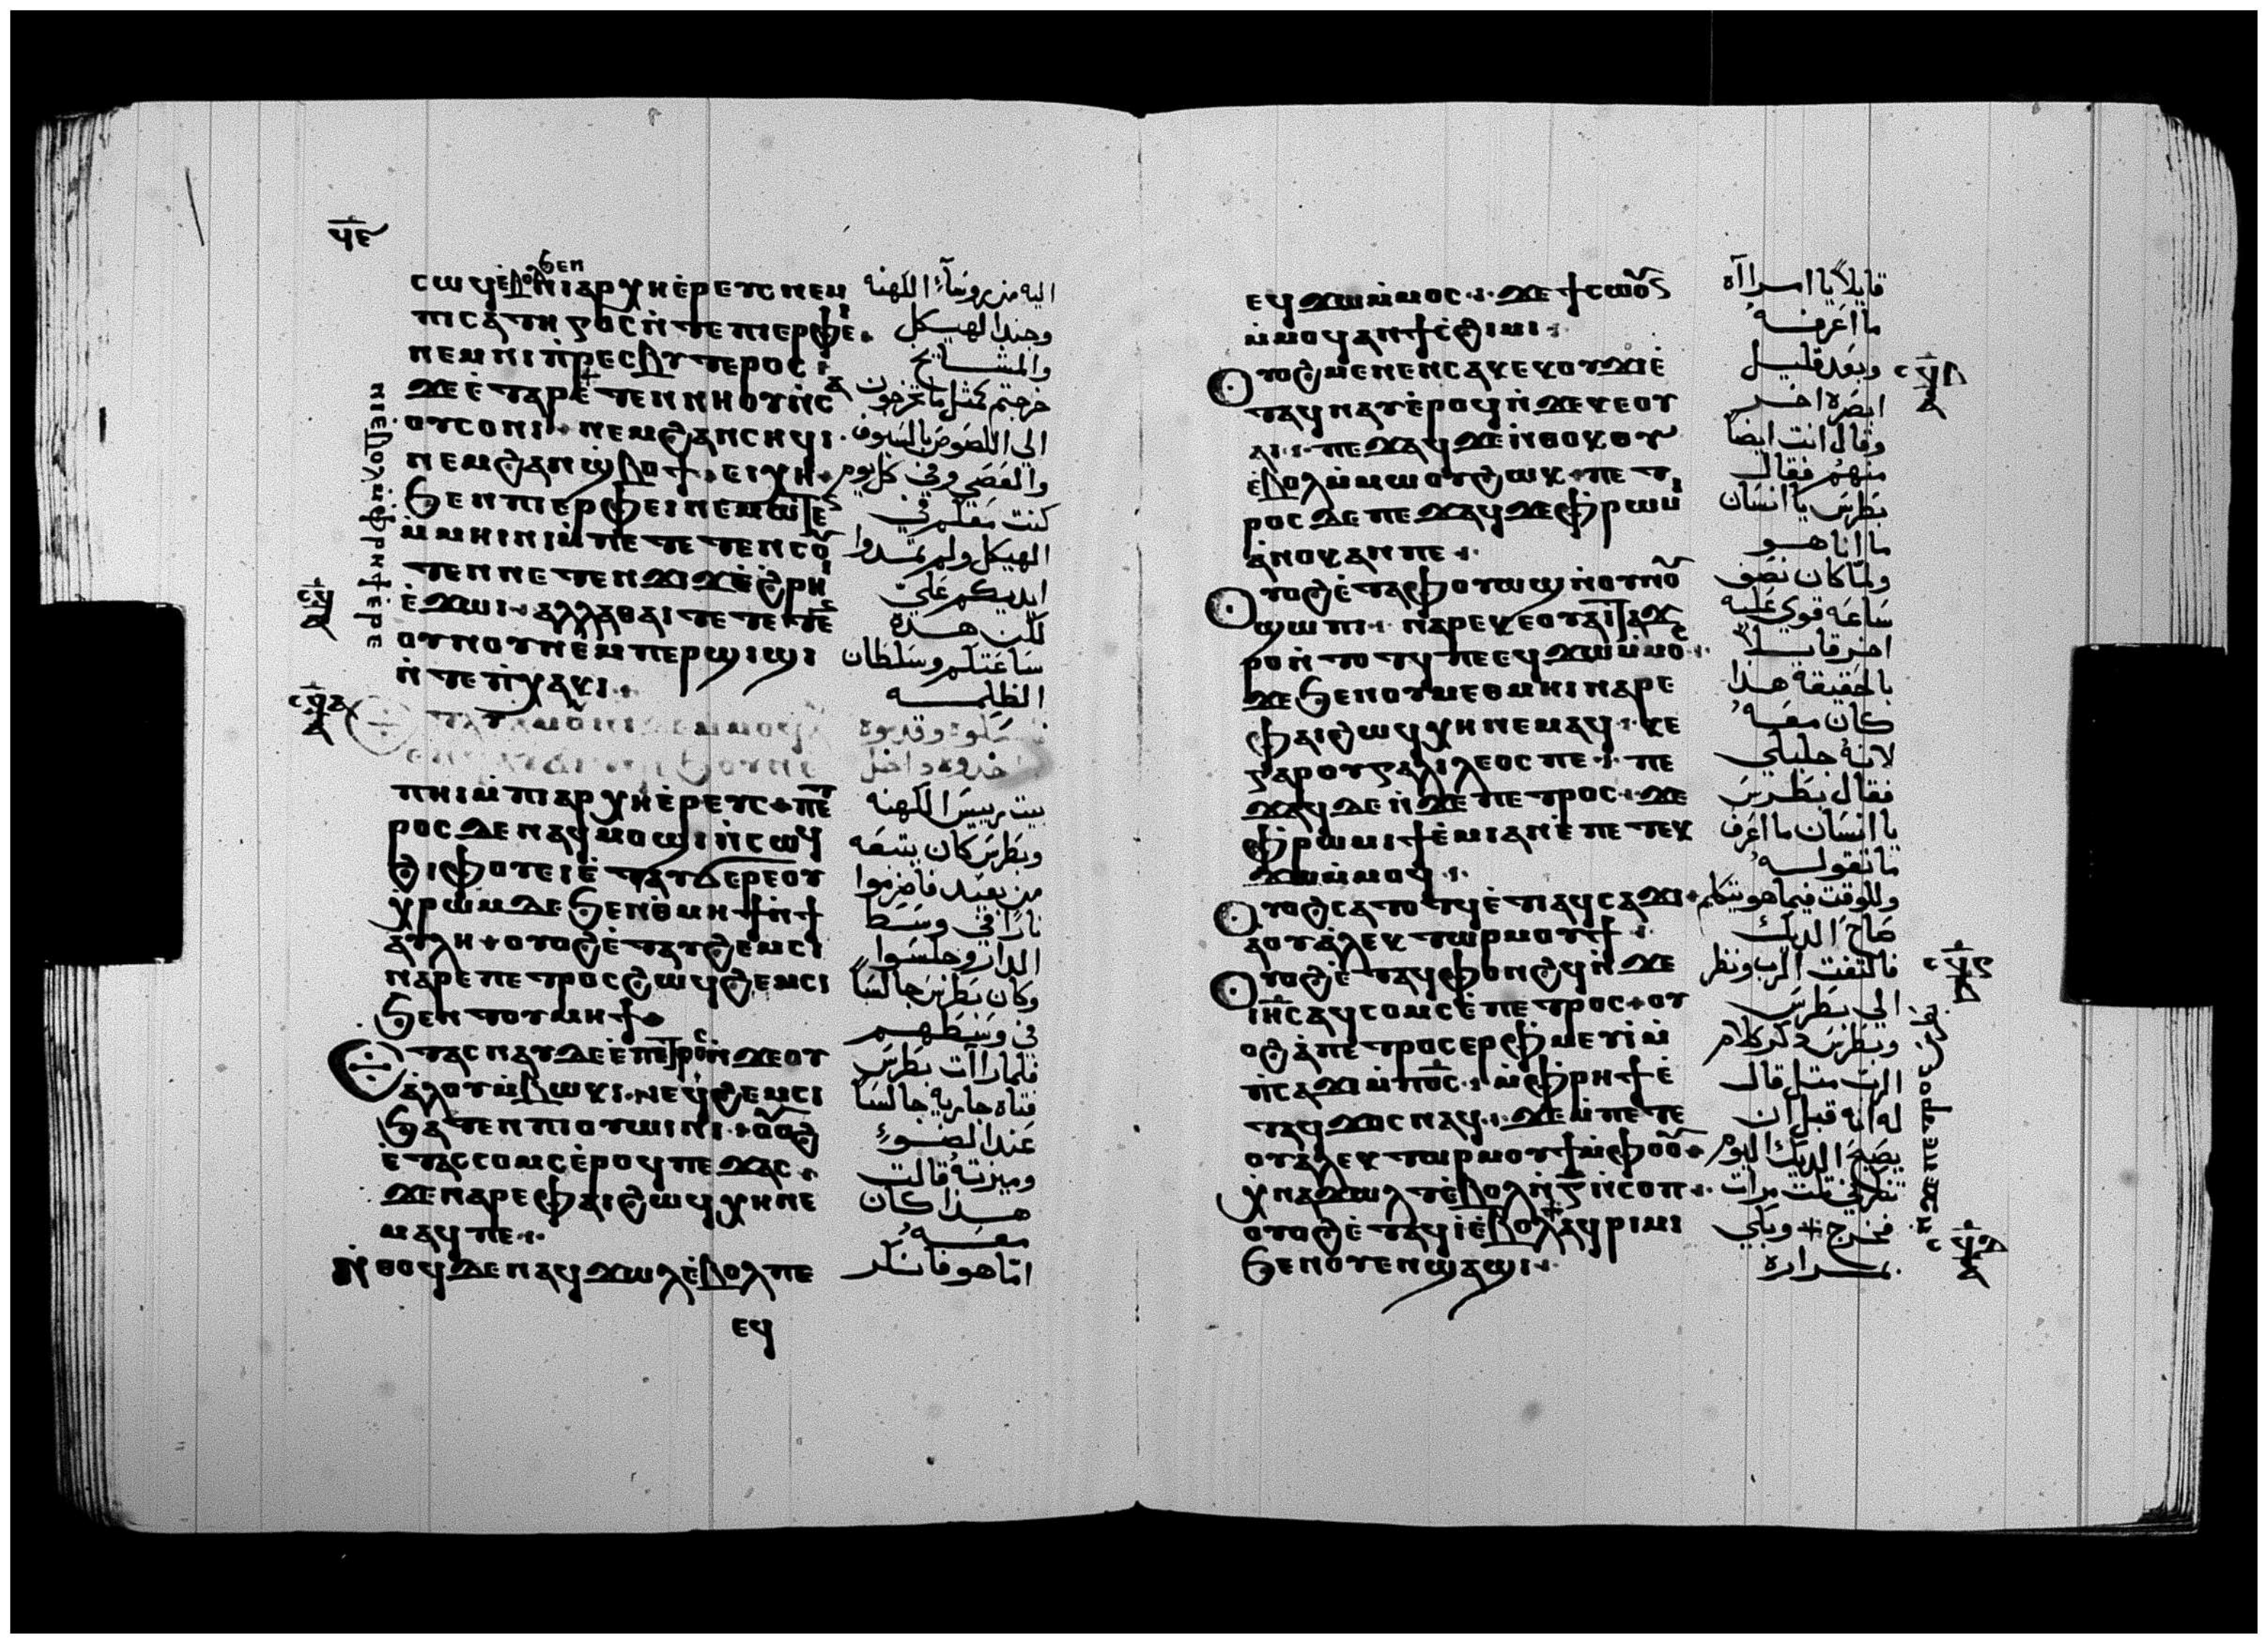 ϥⲉ
ⲥⲱϥⲉ̀ⲃⲟⲗϧⲉⲛⲛⲓⲁⲣⲭⲏⲉ̀ⲣⲉⲩⲥⲛⲉⲙ
ⲡⲓⲥⲁⲧⲏⲅⲟⲥⲛ̀ⲧⲉⲡⲓⲉⲣⲫⲉⲓ
ⲛⲉⲙⲛⲓⲡ̀ⲣⲉⲥⲃⲩⲧⲉⲣⲟⲥ
ϫⲉⲉ̀ⲧⲁⲣⲉ̀ⲧⲉⲛⲛⲏⲟⲩⲛ̀ⲥⲁ
ⲟⲩⲥⲟⲛⲓ ⲛⲉⲙϩⲁⲛⲥⲏϥⲓ
ⲛⲉⲙϩⲁⲛϣ̀ⲃⲟϯ ⲉⲓⲭⲏ
ϧⲉⲛⲡⲓⲉⲣⲫⲉⲓⲛⲉⲙⲱⲧⲉⲛ
ⲙ̀ⲙⲏⲓⲛⲓⲙ̀ⲡⲉⲧⲉⲧⲉⲛⲥⲟⲩ
ⲧⲉⲛⲛⲉⲧⲉⲛϫⲓϫⲉ̀ϩⲣⲏⲓ
ⲉ̀ϫⲱⲓ ⲁⲗⲗⲁⲑⲁⲓⲧⲉⲧⲉⲧⲉⲛ
ⲟⲩⲛⲟⲩⲛⲉⲙⲡⲉⲣϣⲓϣⲓ
ⲛ̀ⲧⲉⲡ̀ⲭⲁⲕⲓ
ⲉⲧⲁⲩⲁⲙⲟⲛⲓ ⲙ̀ⲙⲟϥ
ⲡⲏⲓⲙ̀ⲡⲓⲁⲣⲭⲏⲉ̀ⲣⲉⲩⲥ ⲡⲉⲧ
ⲣⲟⲥⲇⲉⲛⲁϥⲙⲟϣⲓⲛ̀ⲥⲱϥ
ϩⲓⲫⲟⲩⲉⲓⲉ̀ⲧⲁⲩϭⲉⲣⲉⲟⲩ
ⲭⲣⲱⲙⲇⲉϧⲉⲛⲑ̀ⲙⲏϯⲛ̀ϯ
ⲁⲩⲗⲏ ⲟⲩⲟϩⲉ̀ⲧⲁⲩϩⲉⲙⲥⲓ
ⲛⲁⲣⲉⲡⲉⲧⲣⲟⲥϩⲱϥϩⲉⲙⲥⲓ
ϧⲉⲛⲧⲟⲩⲙⲏϯ
ⲉⲧⲁⲥⲛⲁⲩⲇⲉⲉ̀ⲡⲉⲧⲣⲟⲥⲛ̀ϫⲉⲟⲩ
ⲁ̀ⲗⲟⲩⲙ̀ⲃⲱⲕⲓ ⲛⲉϥϩⲉⲙⲥⲓ
ϧⲁⲧⲉⲛⲡⲓⲟⲩⲱⲓⲛⲓ ⲟⲩⲟϩ
ⲉ̀ⲧⲁⲥⲥⲟⲙⲥⲉ̀ⲣⲟϥⲡⲉϫⲁⲥ
ϫⲉⲛⲁⲣⲉⲫⲁⲓϩⲱϥⲭⲏⲛⲉ
ⲙⲁϥⲡⲉ
ⲛ̀ⲑⲟϥⲇⲉⲛⲁϥϫⲱⲗⲉ̀ⲃⲟⲗⲡⲉ
ⲉϥ
ⲛⲓⲉⲃⲟⲗⲙ̀ⲫⲣⲏϯⲉⲣⲉ
اليه من روسآء الكهنة
وجند الهيكل
والمشايخ
خرجتم كمثل ما تخرجون
الي اللصوص بالسيوف
والعصي وفي كل يوم
كنت معكم في
الهيكل ولم تمدوا
ايديكم علي
لكن هذه
ساعتكم وسلطان
الظلمه
بيت رييس الكهنه
وبطرس كان يتبعه
من بعيد فاضرموا
نارًا في وسط
الدار وجلسوا
وكان بطرس جالسًا
في وسطهم
فلما رات بطرس
فتاه جاريه جالسًا
عند الضوء
وميزته قالت
هذا كان
معه
اما هو فانكر
ⲉϥϫⲱⲙ̀ⲙⲟⲥ ϫⲉϯⲥⲱⲟⲩⲛ
ⲙ̀ⲙⲟϥⲁⲛϯⲥ̀ϩⲓⲙⲓ
ⲟⲩⲟϩⲙⲉⲛⲉⲛⲥⲁⲕⲉⲕⲟⲩϫⲓⲉ̀
ⲧⲁϥⲛⲁⲩⲉ̀ⲣⲟϥⲛ̀ϫⲉⲕⲉⲟⲩ
ⲁⲓ ⲡⲉϫⲁϥϫⲉⲛ̀ⲑⲟⲕⲟⲩ
ⲉ̀ⲃⲟⲗⲙ̀ⲙⲱⲟⲩϩⲱⲕ ⲡⲉⲧ
ⲣⲟⲥⲇⲉⲡⲉϫⲁϥϫⲉⲫ̀ⲣⲱⲙⲓ
ⲁ̀ⲛⲟⲕⲁⲛⲡⲉ
ⲟⲩⲟϩⲉ̀ⲧⲁⲫⲟⲩⲱϣⲛ̀ⲟⲩⲛⲟⲩ
ϣⲱⲡⲓ ⲛⲁⲣⲉⲕⲉⲟⲩⲁⲓⲧⲁϫ
ⲣⲟⲛ̀ⲧⲟⲧϥⲡⲉⲉϥϫⲱⲙ̀ⲙⲟⲥ
ϫⲉϧⲉⲛⲟⲩⲙⲉⲑⲙⲏⲓⲛⲁⲣⲉ
ⲫⲁⲓϩⲱϥⲭⲏⲛⲉⲙⲁϥ ⲕⲉ
ⲅⲁⲣⲟⲩⲅⲁⲗⲓⲗⲉⲟⲥⲡⲉ ⲡⲉ
ϫⲁϥⲇⲉⲛ̀ϫⲉⲡⲉⲧⲣⲟⲥ ϫⲉ
ⲫ̀ⲣⲱⲙⲓϯⲉ̀ⲙⲓⲁⲛⲉ̀ⲡⲉⲧⲉⲕ
ϫⲱⲙ̀ⲙⲟϥ
ⲟⲩⲟϩⲥⲁⲧⲟⲧϥⲉ̀ⲧⲓⲁϥⲥⲁϫⲓ
ⲁⲟⲩⲁ̀ⲗⲉⲕⲧⲱⲣⲙⲟⲩϯ
ⲟⲩⲟϩⲉ̀ⲧⲁϥⲫⲟⲛϩϥⲛ̀ϫⲉ
ⲓⲏⲥⲁϥⲥⲟⲙⲥⲉ̀ⲡⲉⲧⲣⲟⲥ ⲟⲩ
ⲟϩⲁ̀ⲡⲉⲧⲣⲟⲥⲉⲣⲫ̀ⲙⲉⲩⲓⲙ̀
ⲡ̀ⲥⲁϫⲓⲙ̀ⲡⲟ̅ⲥ̅ ⲙ̀ⲫ̀ⲣⲏϯⲉ̀
ⲧⲁϥϫⲟⲥⲛⲁϥ ϫⲉⲙ̀ⲡⲉⲧⲉ
ⲟⲩⲁ̀ⲗⲉⲕⲧⲱⲣⲙⲟⲩϯⲙ̀ⲫⲟⲟⲩ
ⲭ̀ⲛⲁϫⲱⲗⲧⲉ̀ⲃⲟⲗⲛ̀ⲅ̅ⲛ̀ⲥⲟⲡ
ⲟⲩⲟϩⲉ̀ⲧⲁϥⲓ̀ⲉ̀ⲃⲟⲗⲁϥⲣⲓⲙⲓ
ϧⲉⲛⲟⲩⲉⲛϣⲁϣⲓ
قايلاً يا امراآه
ما اعرفه
وبعد قليل
ابصره اخر
وقال انت ايضًا
منهم فقال
بطرس يا انسان
ما انا هو
ولما كان نصف
ساعه قوي عليه
اخر قايلاً
بالحقيقه هذا
كان معه
لانه جليلي
فقال بطرس
يا انسان ما اعرف
ما تقوله
وللوقت فيما هو يتكلم
صاح الديك
فالتفت الرب ونظر
الي بطرس
وبطرس ذكر كلام
الرب مثل قال
له انه قبل ان
يصيح الديك اليوم
تنكرني ثلت مرات
فخرج وبكي
بمراره